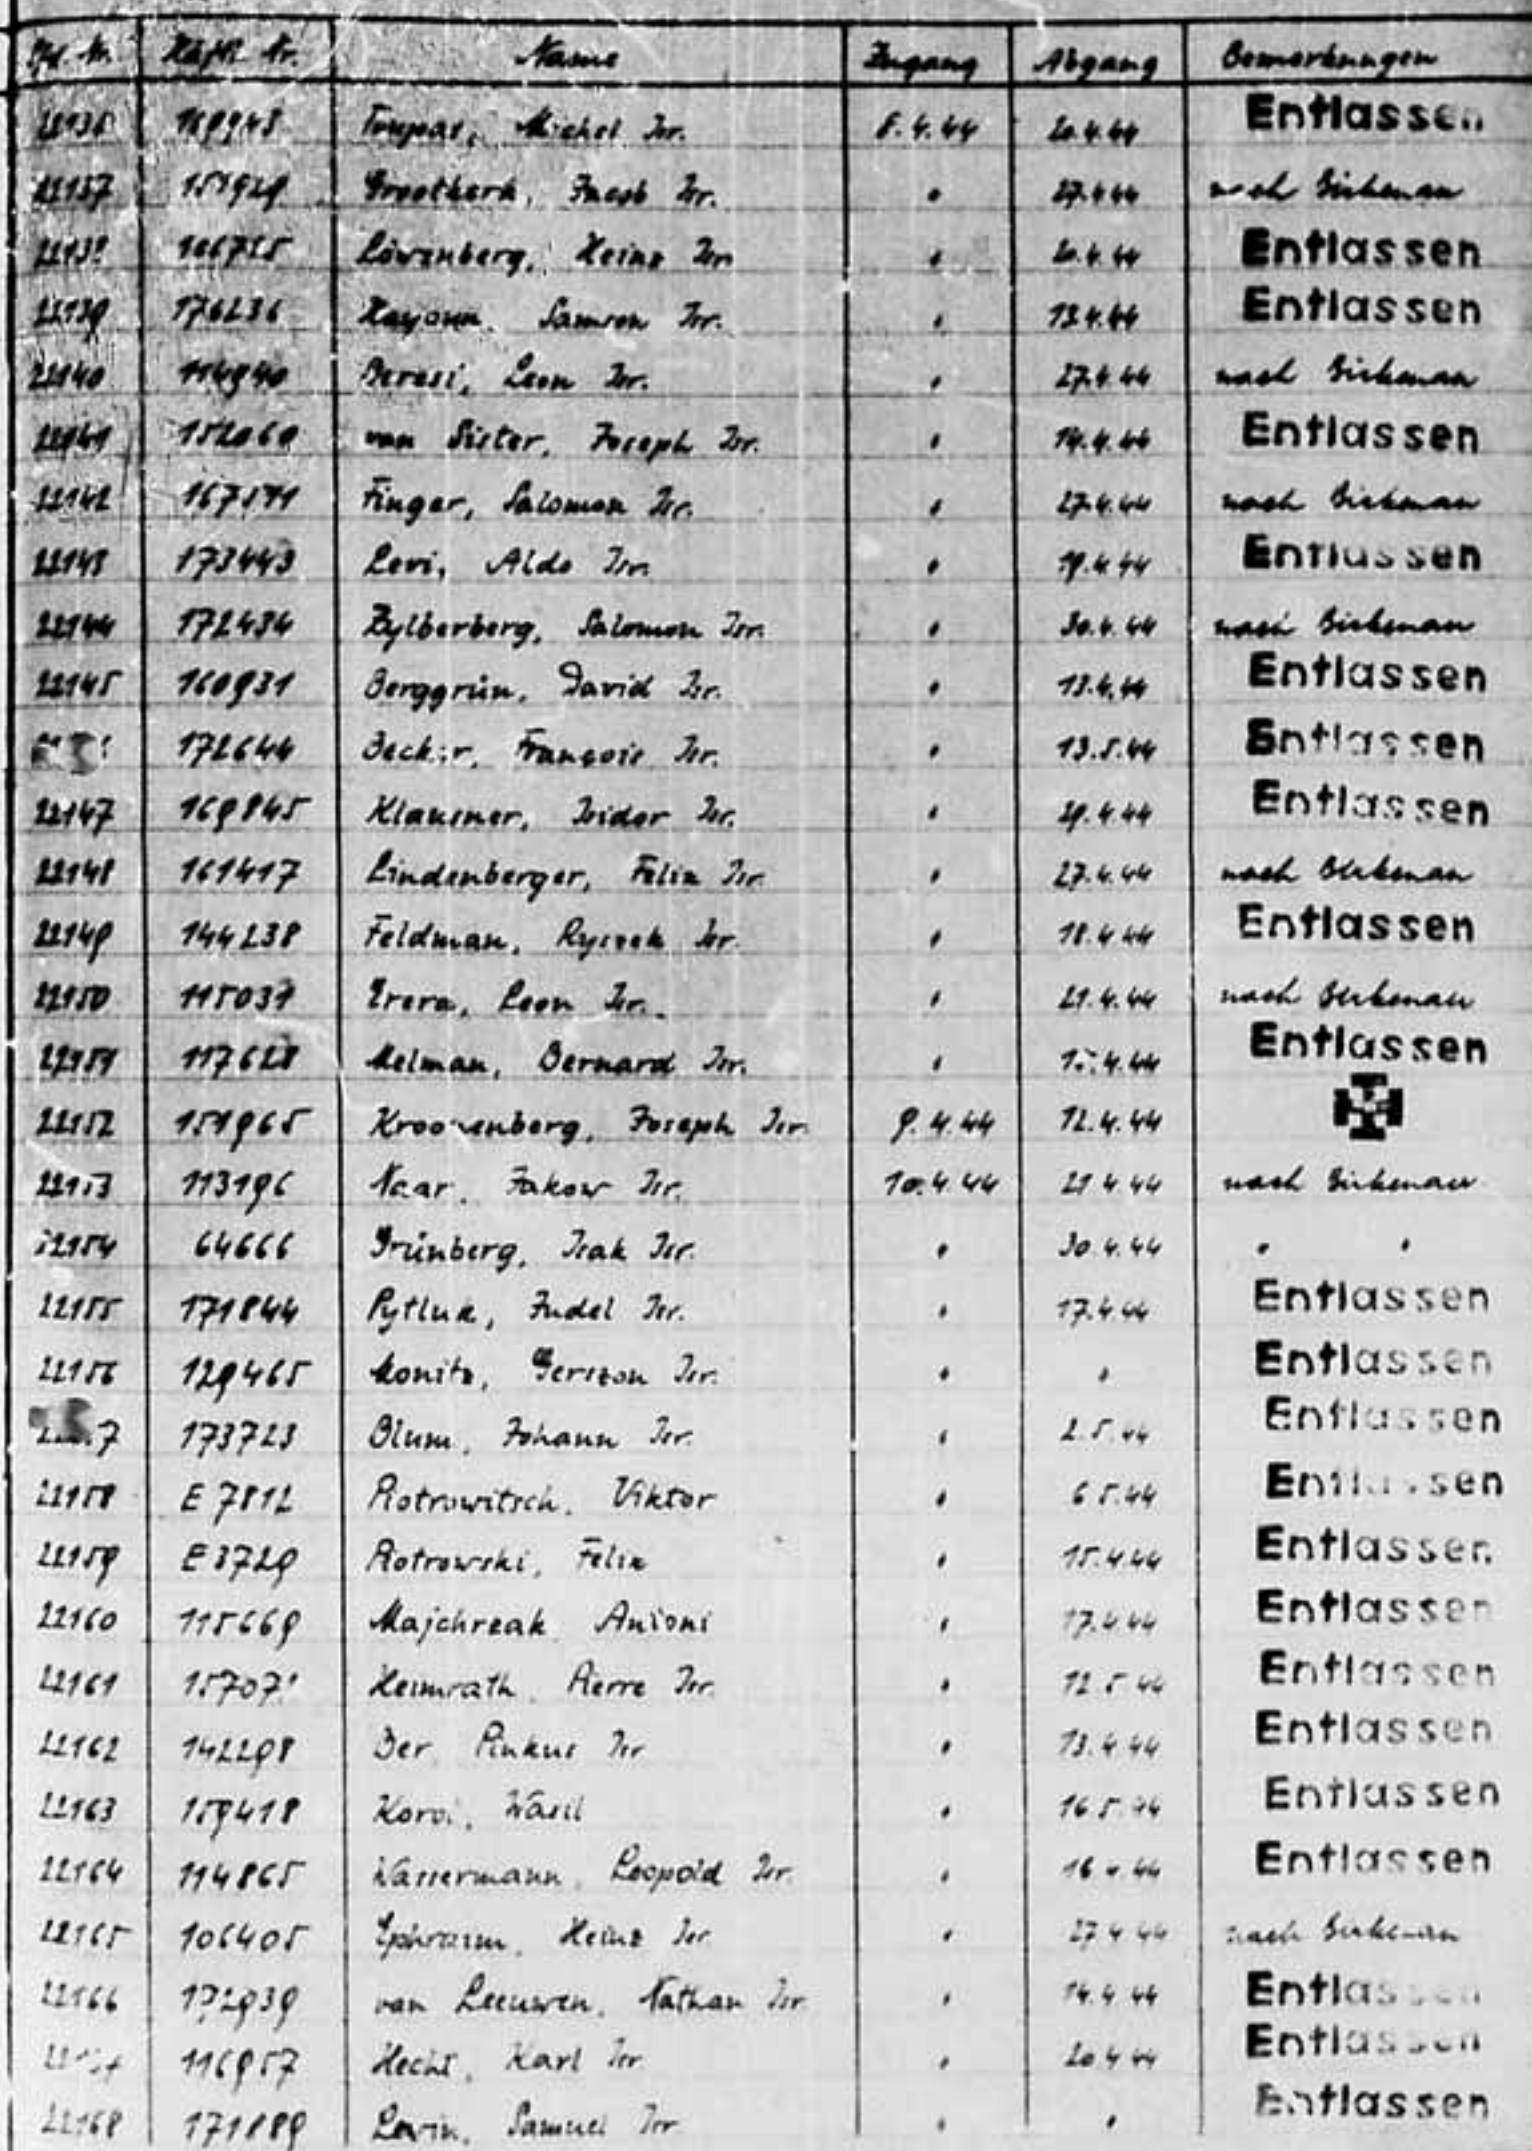 Lfd. Nr. Häftl. Nr. Name Zugang Abgang Bemerkungen
22136 169948 Michel Isr. 8.4.44 20.4.44 Entlassen
22137 151929 Grootkerk, Jacob Isr. " 27.4.44 nach Birkenau
2213 Löwenberg, Heinz Isr. " 20.4.44 Entlassen
22139 176236 Samson Isr. " 13.4.44 Entlassen
22140 114940 Beresi, Leon Isr. " 27.4.44 nach Birkenau
22141 152060 van Sister, Joseph Isr. " 14.4.44 Entlassen
22142 167541 Finger, Salomon Isr. " 27.4.44 nach Birkenau
22143 173443 Levi, Aldo Isr. " 19.4.44 Entlassen
22144 172434 Zylberberg, Salomon Isr. " 30.4.44 nach Birkenau
22145 160931 Berggrün, David Isr. " 13.4.44 Entlassen
172644 Becker, François Isr. " 13.5.44 Entlassen
22147 169845 Klausner, Isidor Isr. " 29.4.44 Entlassen
22148 161417 Lindenberger, Felix Isr. " 27.4.44 nach Birkenau
22149 144238 Feldman, Ryszek Isr. " 18.4.44 Entlassen
22150 115037 Erera, Leon Isr. " 21.4.44 nach Birkenau
22151 117628 Melman, Bernard Isr. " Entlassen
22152 151965 Kroonenberg, Joseph Isr. 9.4.44 12.4.44
22153 113196 Naar, Jakow Isr. 10.4.44 21.4.44 nach Birkenau
22154 64666 Grünberg, Isak Isr. " 30.4.44 " "
22155 171844 Pytluk, Judel Isr. " 17.4.44 Entlassen
22156 129465 Monitz, Gerszon Isr. " " Entlassen
173723 Blum, Johann Isr. " 2.5.44 Entlassen
22158 E 7812 Piotrowitsch, Viktor " 6.5.44 Entlassen
22159 E 3729 Piotrowski, Felix " 15.4.44 Entlassen
22160 115669 Majchrzak, Antoni " 17.4.44 Entlassen
22161 Heimrath, Pierre Isr. " 12.5.44 Entlassen
22162 142298 Ber, Pinkus Isr. " 13.4.44 Entlassen
22163 159418 Wasil " 16.5.44 Entlassen
22164 114865 Wassermann, Leopold Isr. " 16.4.44 Entlassen
22165 106405 Ephraim, Heinz Isr. " 27.4.44 nach Birkenau
22166 172939 van Leeuwen, Nathan Isr. " 14.4.44 Entlassen
116957 Hecht, Karl Isr. " 20.4.44 Entlassen
22168 171889 Levin, Samuel Isr. " " Entlassen